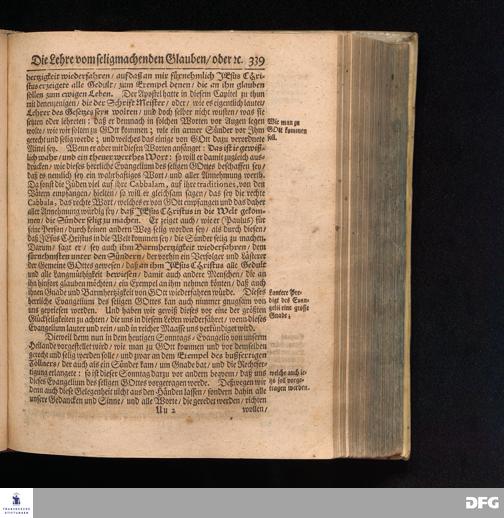 Die Lehre vom seligmachenden Glauben/ oder ꝛc. 339
hertzigkeit wiederfahren/ auf daß an mir fürnehmlich JEsus Chri-
stus erzeigete alle Gedult/ zum Exempel denen/ die an ihn glauben
sollen zum ewigen Leben. Der Apostel hatte in diesem Capitel zu thun
mit denenjenigen/ die der Schrifft Meister/ oder/ wie es eigentlich lautet/
Lehrer des Gesetzes seyn wolten/ und doch selber nicht wusten/ was sie
setzten oder lehreten: daß er demnach in solchen Worten vor Augen legen
wolte/ wie wir solten zu GOtt kommen; wie ein armer Sünder vor Ihm
gerecht und selig werde; und welches das einige von GOtt dazu verordnete
Mittel sey. Wenn er aber mit diesen Worten anfänget: Das ist ie gewiß-
lich wahr/ und ein theuer werthes Wort: so will er damit zugleich aus-
drücken/ wie dieses herrliche Evangelium des seligen GOttes beschaffen sey/
daß es nemlich sey ein wahrhafftiges Wort/ und aller Annehmung werth.
Da sonst die Jüden viel auf ihre Cabbalam, auf ihre traditiones, von den
Vätern empfangen/ hielten/ so will er gleichsam sagen/ das sey die rechte
Cabbala, das rechte Wort/ welches er von GOtt empfangen und das daher
aller Annehmung würdig sey/ daß JEsus Christus in die Welt gekom-
men/ die Sünder selig zu machen. Er zeiget auch/ wie er (Paulus) für
seine Person/ durch keinen andern Weg selig worden sey/ als durch diesen/
daß JEsus Christus in die Welt kommen sey/ die Sünder selig zu machen.
Darum/ sagt er/ sey auch ihm Barmhertzigkeit wiederfahren/ dem
fürnehmsten unter den Sündern/ der vorhin ein Verfolger und Lästerer
der Gemeine GOttes gewesen/ daß an ihm JEsus Christus alle Gedult
und alle Langmüthigkeit bewiesen/ damit auch andere Menschen/ die an
ihn hinfort glauben möchten/ ein Exempel an ihm nehmen könten/ daß auch
ihnen Gnade und Barmhertzigkeit von GOtt wiederfahren würde. Dieses
herrliche Evangelium des seligen GOttes kan auch nimmer gnugsam von
uns gepriesen werden. Und haben wir gewiß dieses vor eine der größten
Glückseligkeiten zu achten/ die uns in diesem Leben wiederfähret/ wenn dieses
Evangelium lauter und rein/ und in reicher Maasse uns verkündiget wird.
Dieweil denn nun in dem heutigen Sonntags-Evangelio von unserm
Heilande vorgestellet wird/ wie man zu GOtt kommen und vor demselben
gerecht und selig werden solle/ und zwar an dem Exempel des bußfertigen
Zöllners/ der auch als ein Sünder kam/ um Gnade bat/ und die Rechtfer-
tigung erlangete: so ist dieser Sonntag darzu vor andern bequem/ daß uns
dieses Evangelium des seligen GOttes vorgetragen werde. Deßwegen wir
denn auch diese Gelegenheit nicht aus den Händen lassen/ sondern dahin alle
unsere Gedancken und Sinne/ und alle Worte/ die geredet werden/ richten
Uu 2 wollen/
Wie man zu
GOtt kommen
soll.
Lautere Pre-
digt des Evan-
gelii eine grosse
Gnade;
welche auch ie-
tzo soll vorge-
tragen werden.
FRANCKESCHE
STIFTUNGEN
DFG